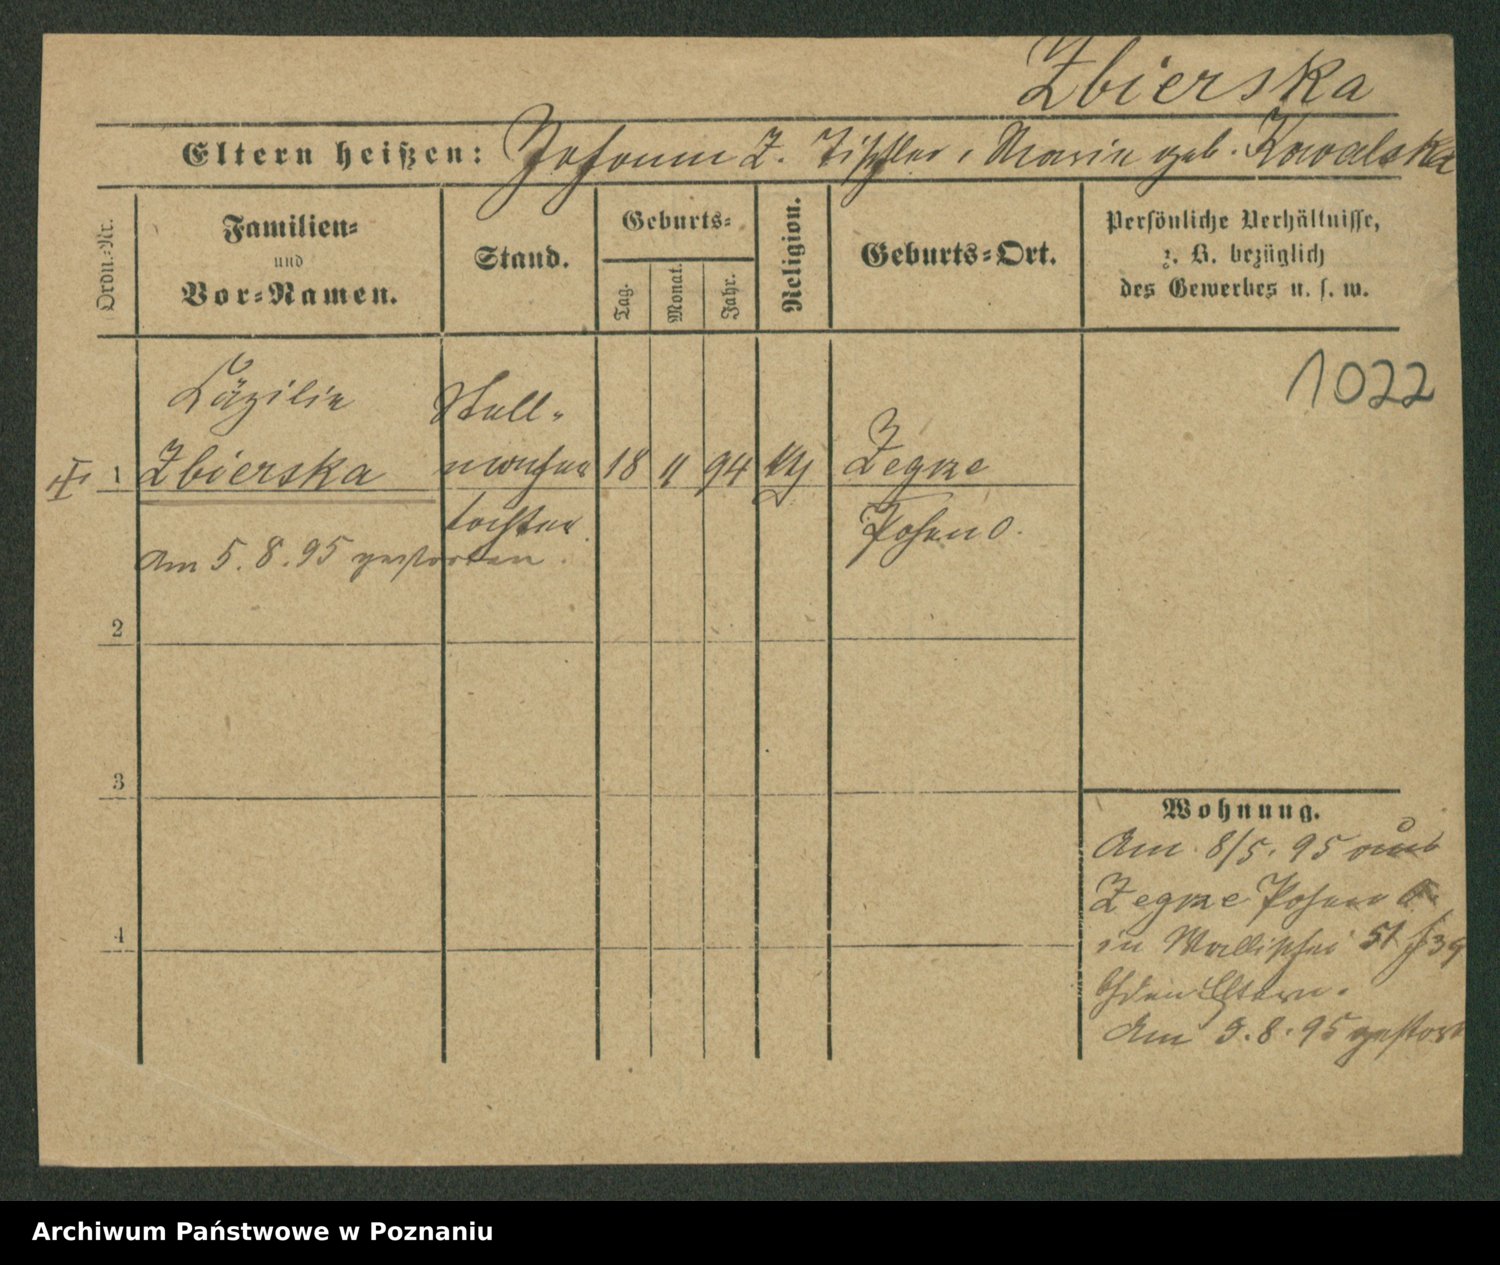 Zbierska
Eltern heißen: Johann Z. Tischler, Marie geb. Kowalska
Ordn.-Nr.
Familien-
und
Vor-Namen.
Stand.
Geburts-
Tag.
Monat.
Jahr.
Religion.
Geburts-Ort.
Persönliche Verhältnisse,
z. B. bezüglich
des Gewerbes u. s. w.
1022
Cäzilie
Stell-
macher
tochter
1 Zbierska 18 11 94 kth Zegrze
Posen O.
Am 5.8.95 gestorben.
2
3
4
Wohnung.
Am 8/5.95 aus
Zegrze Posen O.
in Wallischei 51
b/den Eltern.
Am 5.8.95 gestorb
Archiwum Państwowe w Poznaniu